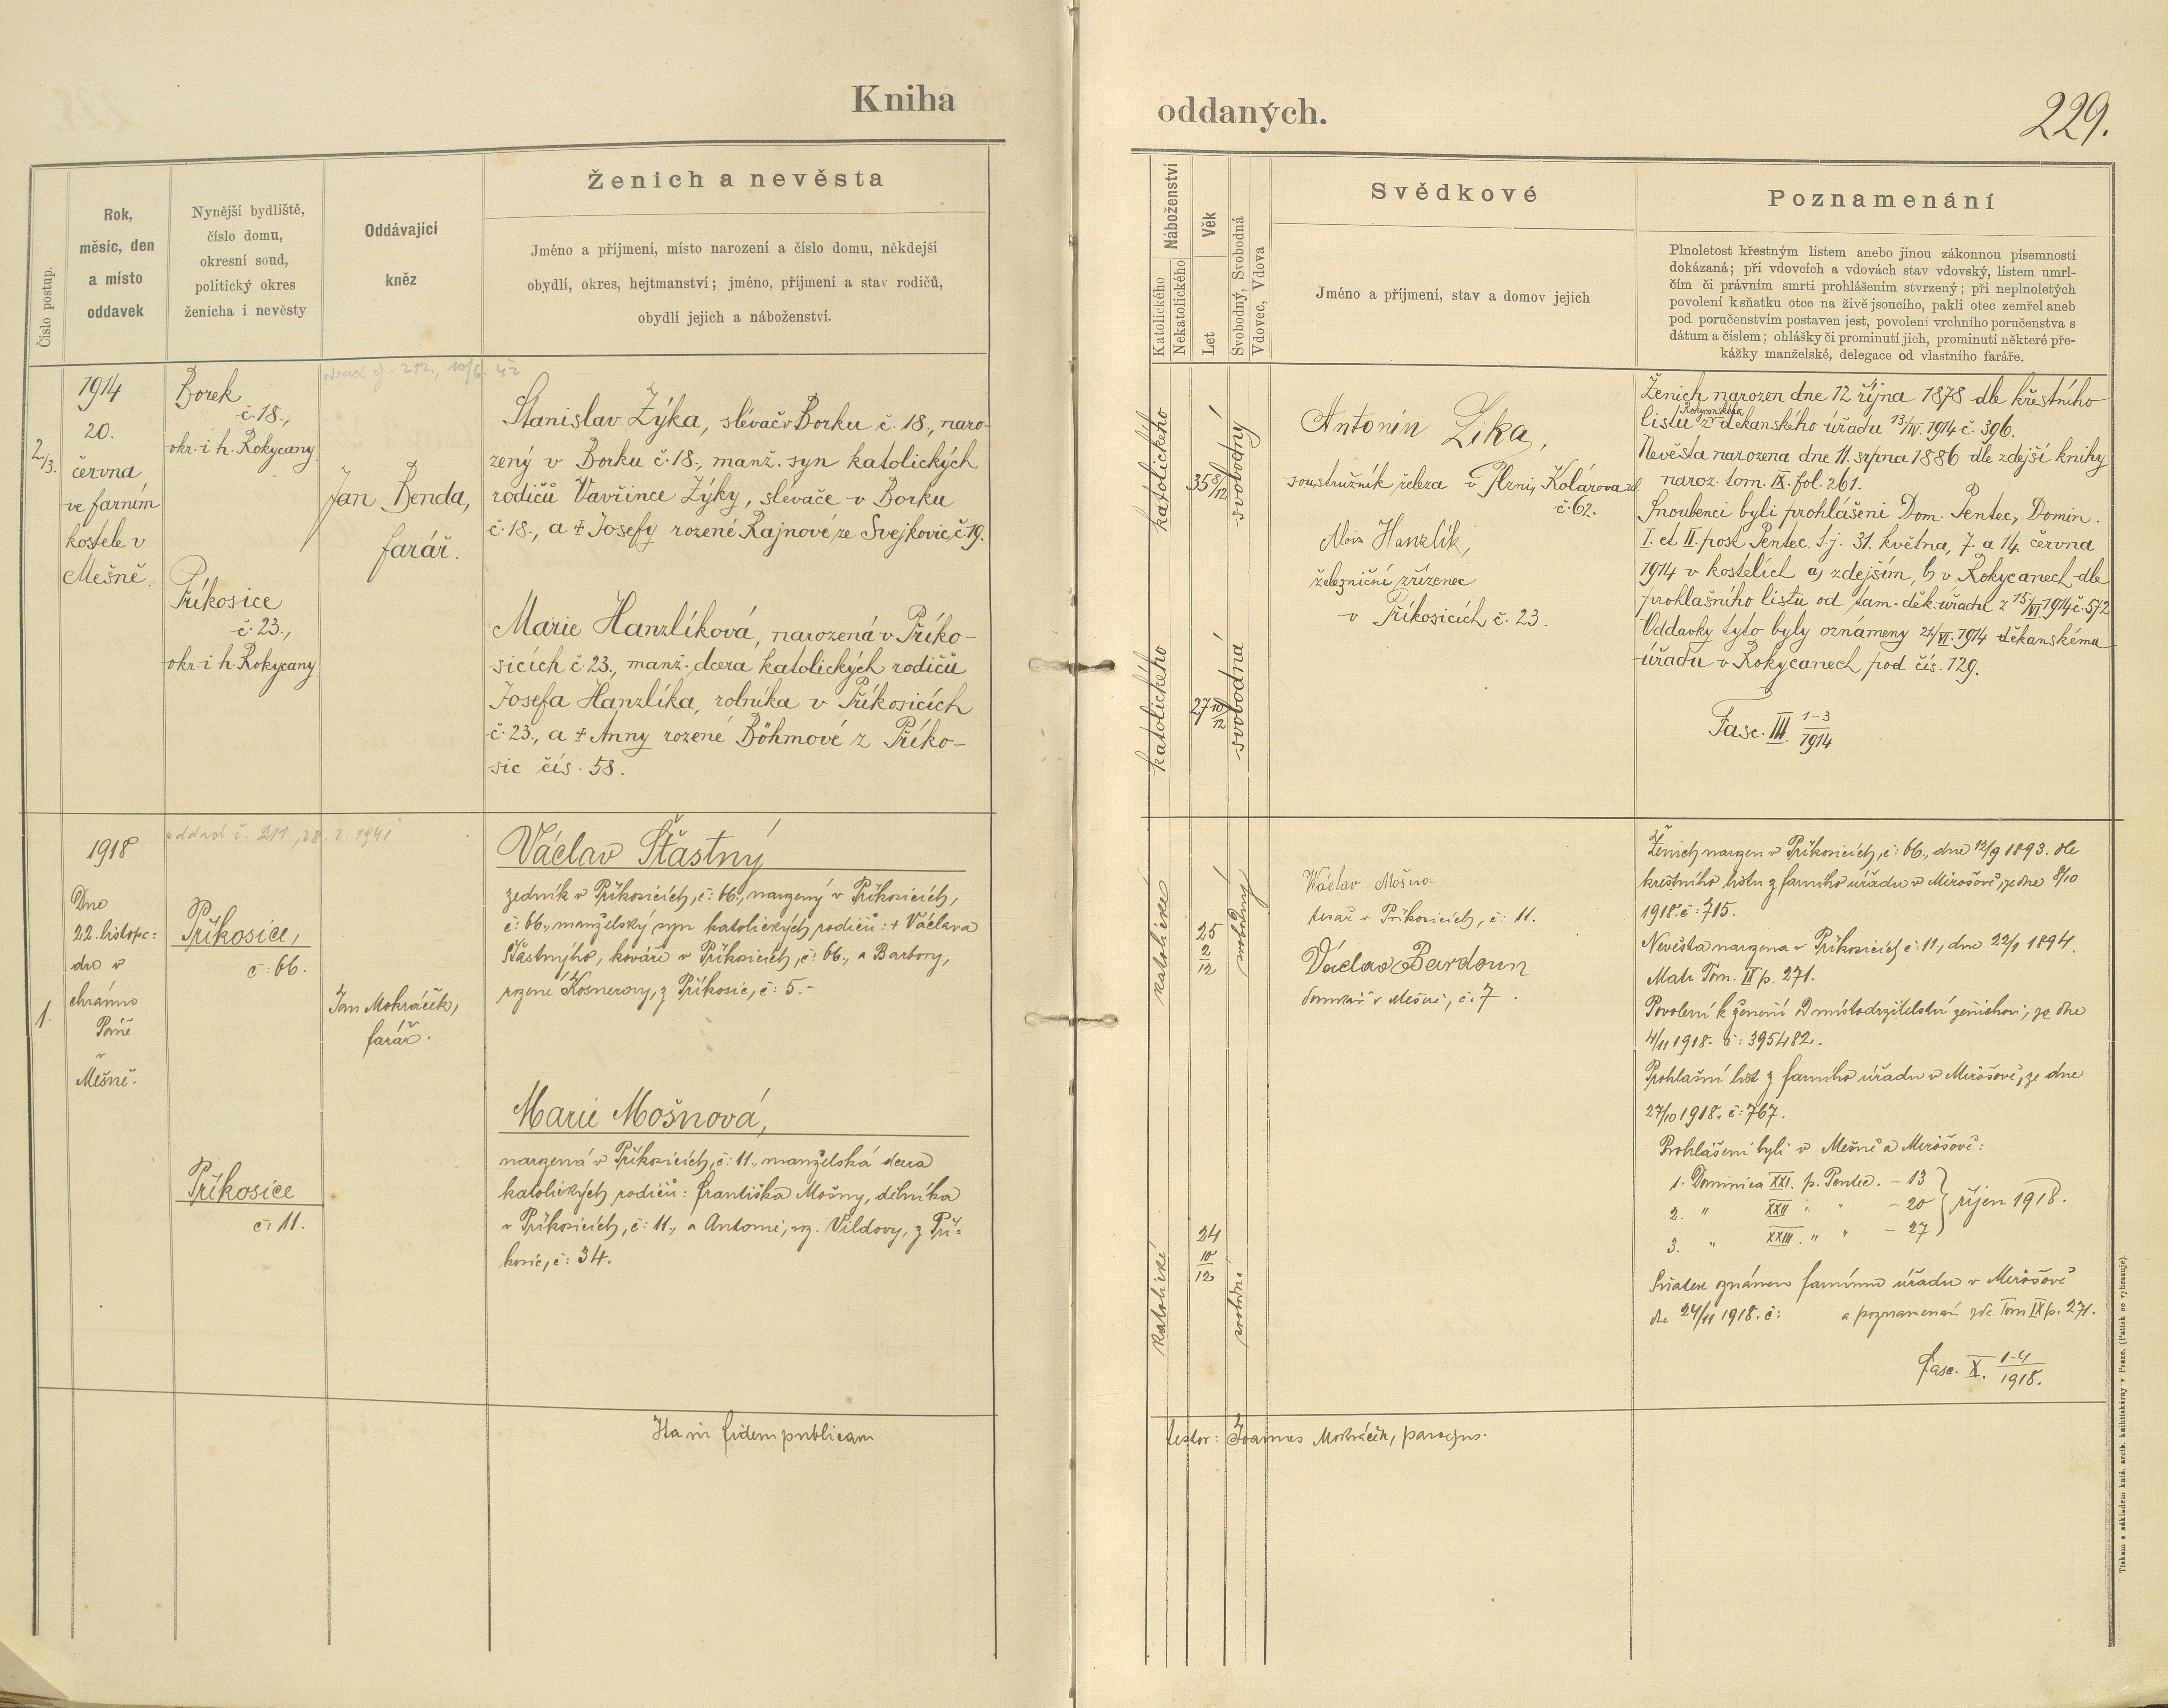 Kniha
oddaných.
229.
Číslo postup.
Rok,
měsíc, den
a místo
oddavek
Nynější bydliště,
číslo domu,
okresní soud,
politický okres
ženicha i nevěsty
Oddávající
kněz
Ženich a nevěsta
Jméno a příjmení, místo narození a číslo domu, někdejší
obydlí, okres, hejtmanství; jméno, příjmení a stav rodičů,
obydlí jejich a náboženství.
Náboženství
Katolického
Nekatolického
Věk
Let
Svobodný, Svobodná
Vdovec, Vdova
Svědkové
Jméno a příjmení, stav a domov jejich
Poznamenání
Plnoletost křestným listem anebo jinou zákonnou písemností
dokázaná; při vdovcích a vdovách stav vdovský, listem umrl-
čím či právním smrti prohlášením stvrzený; při neplnoletých
povolení k sňatku otce na živě jsoucího, pakli otec zemřel aneb
pod poručenstvím postaven jest, povolení vrchního poručenstva s
dátum a číslem; ohlášky či prominutí jich, prominutí některé pře-
kážky manželské, delegace od vlastního faráře.
2./3.
1914
20.
června
ve farním
kostele v
Mešně.
Borek
č. 18.,
okr. i h. Rokycany
Příkosice
č. 23.,
okr. i h. Rokycany
Jan Benda,
farář.
Stanislav Zýka, slévač v Borku č. 18., naro-
zený v Borku č. 18., manž. syn katolických
rodičů Vavřince Zýky, slévače v Borku
č. 18., a † Josefy rozené Rajnové ze Svejkovic, č. 19.
Marie Hanzlíková, narozená v Příko-
sicích č. 23., manž. dcera katolických rodičů
Josefa Hanzlíka, rolníka v Příkosicích
č. 23., a † Anny rozené Böhmové z Příko-
sic čís. 58.
katolického
35 8/12
svobodný
katolického
27 10/12
svobodná
Antonín Zika,
soustružník železa v Plzni, Kolárova ul.
č. 62.
Alois Hanzlík,
železniční zřízenec
v Příkosicích č. 23.
Ženich narozen dne 12. října 1878 dle křestního
listu z Rokycanského děkanského úřadu 13/IV. 1914 č. 396.
Nevěsta narozena dne 11. srpna 1886 dle zdejší knihy
naroz. tom. IX. fol. 261.
Snoubenci byli prohlášeni Dom. Pentec, Domin.
I. et II. post Pentec. t. j. 31. května, 7. a 14. června
1914 v kostelích a) zdejším, b) v Rokycanech dle
prohlašního listu od tam. děk. úřadu z 15/VI. 1914 č. 572
Oddavky tyto byly oznámeny 21/VI. 1914 děkanskému
úřadu v Rokycanech pod čís. 129.
Fasc. III. 1-3/1914
1.
1918
Dne
22. listopa:
du v
chrámu
Páně
v
Mešně.
oddací č. 211, 28. 2. 1941
Příkosice,
č: 66.
Příkosice
č: 11.
Jan Mokráček,
farář.
Václav Šťastný
zedník v Příkosicích, č: 66., narozený v Příkosicích,
č: 66., manželský syn katolických rodičů: † Václava
Šťastnýho, kováře v Příkosicích, č: 66., a Barbory,
rozené Kosnerovy, z Příkosic, č: 5.-
Marie Mošnová,
narozená v Příkosicích, č: 11., manželská dcera
katolických rodičů: Františka Mošny, dělníka
v Příkosicích, č: 11., a Antonie, roz. Vildovy, z Pří-
kosic, č: 34.
katolické
25
2/12
svobodný
katolické
24
10/12
svobodná
Václav Mošna
tesař v Příkosicích, č: 11.
Václav Bardoun
domkář v Mešně, č. 7.
Ženich narozen v Příkosicích, č: 66., dne 12/9 1893. dle
křestního listu z farního úřadu v Mirošově, ze dne 8/10
1918. č: 715.
Nevěsta narozena v Příkosicích č: 11., dne 22/1 1894.
Matr. Tom. IX p. 271.
Povolení k ženění od místodržitelství ženichovi, ze dne
4/11 1918. č: 395482.
Prohlašní list z farního úřadu v Mirošově, ze dne
27/10 1918. č: 767.
Prohlášeni byli v Mešně a Mirošově:
1. Dominica XXI. p. Pentec. - 13
2. " XXII " " - 20 říjen 1918.
3. " XXIII. " " - 27
Sňatek oznámen farnímu úřadu v Mirošově
dne 24/11 1918. č: a poznamenán zde Tom IX p. 271.
Fasc. X. 1-4/1918.
Ita in fidem publicam
testor: Joannes Mokráček, parochus.
Tiskem a nákladem kníž. arcib. knihtiskárny v Praze. (Patisk se vyhrazuje)